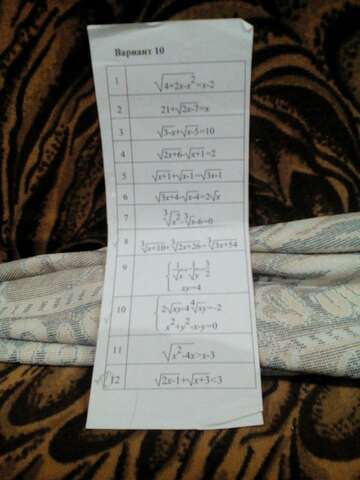 Вариант 10
1 √4+2x-x²=x-2
2 21+√2x-7=x
3 √3-x+√x-5=10
4 √2x+6-√x+1=2
5 √x+1+√x-1=√3x-1
6 √3x+4-√x-4=2√x
7 ³√x²-³√x-6=0
8 ³√x+10+³√2x+26=³√3x+54
9 {1/√x+1/√y=3/2
xy=4
10 {2√xy-4⁴√xy=-2
x²+y²-x-y=0
11 √x²-4x>x-3
12 √2x-1+√x+3<3